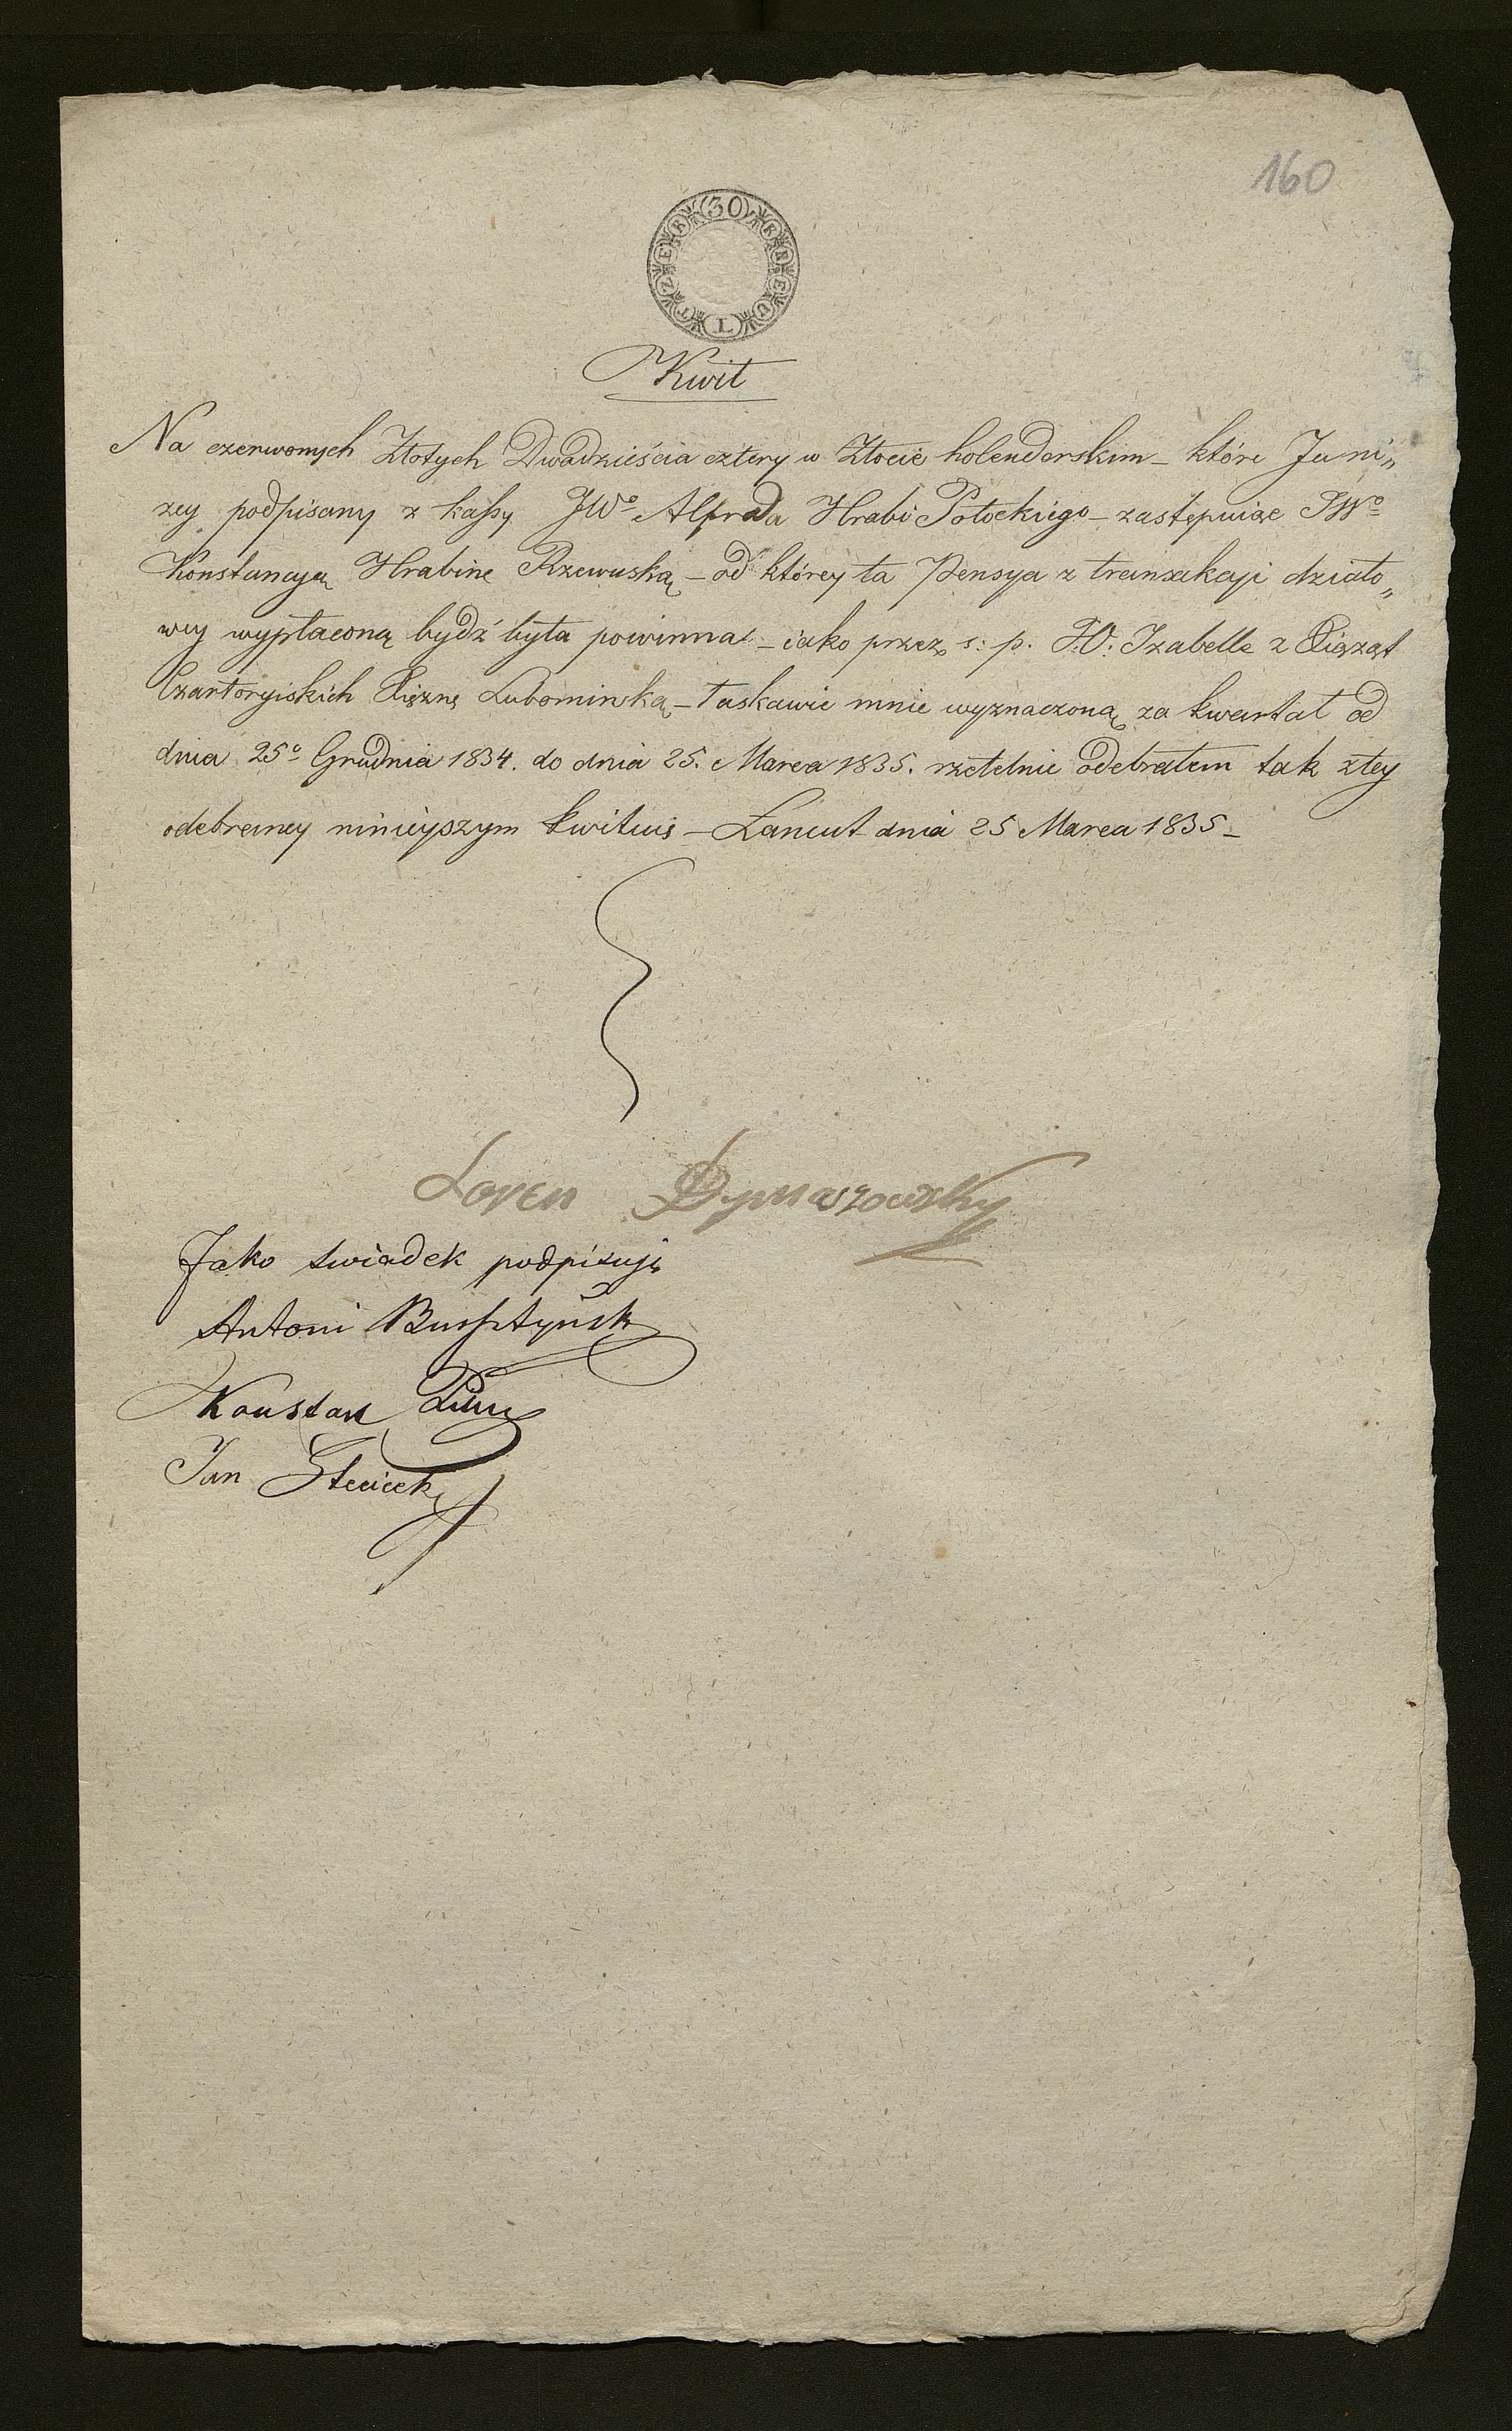 160
30 KREUTZER
Kwit
Na czerwonych Złotych Dwadzieścia cztery w Złocie holenderskim – które Ja ni„
zey podpisany z kassy JWo Alfreda Hrabi Potockiego – zastępuiąc JWo
Konstancyą Hrabinę Rzewuską – od którey ta Pensya z transakcyi działo„
wey wypłaconą bydź była powinna – iako przez ś: p. J:O: Izabellę z Xiążąt
Czartoryiskich Xiężnę Lubomirską – łaskawie mnie wyznaczoną za kwartał od
dnia 25o Grudnia 1834. do dnia 25. Marca 1835. rzetelnie odebrałem tak z tey
odebraney ninieyszym kwituię – Łancut dnia 25 Marca 1835 –
Loren Dymaszowsky
Jako swiadek podpisuję
Antoni Bursztyńsk
Konstan
Jan Steciecki